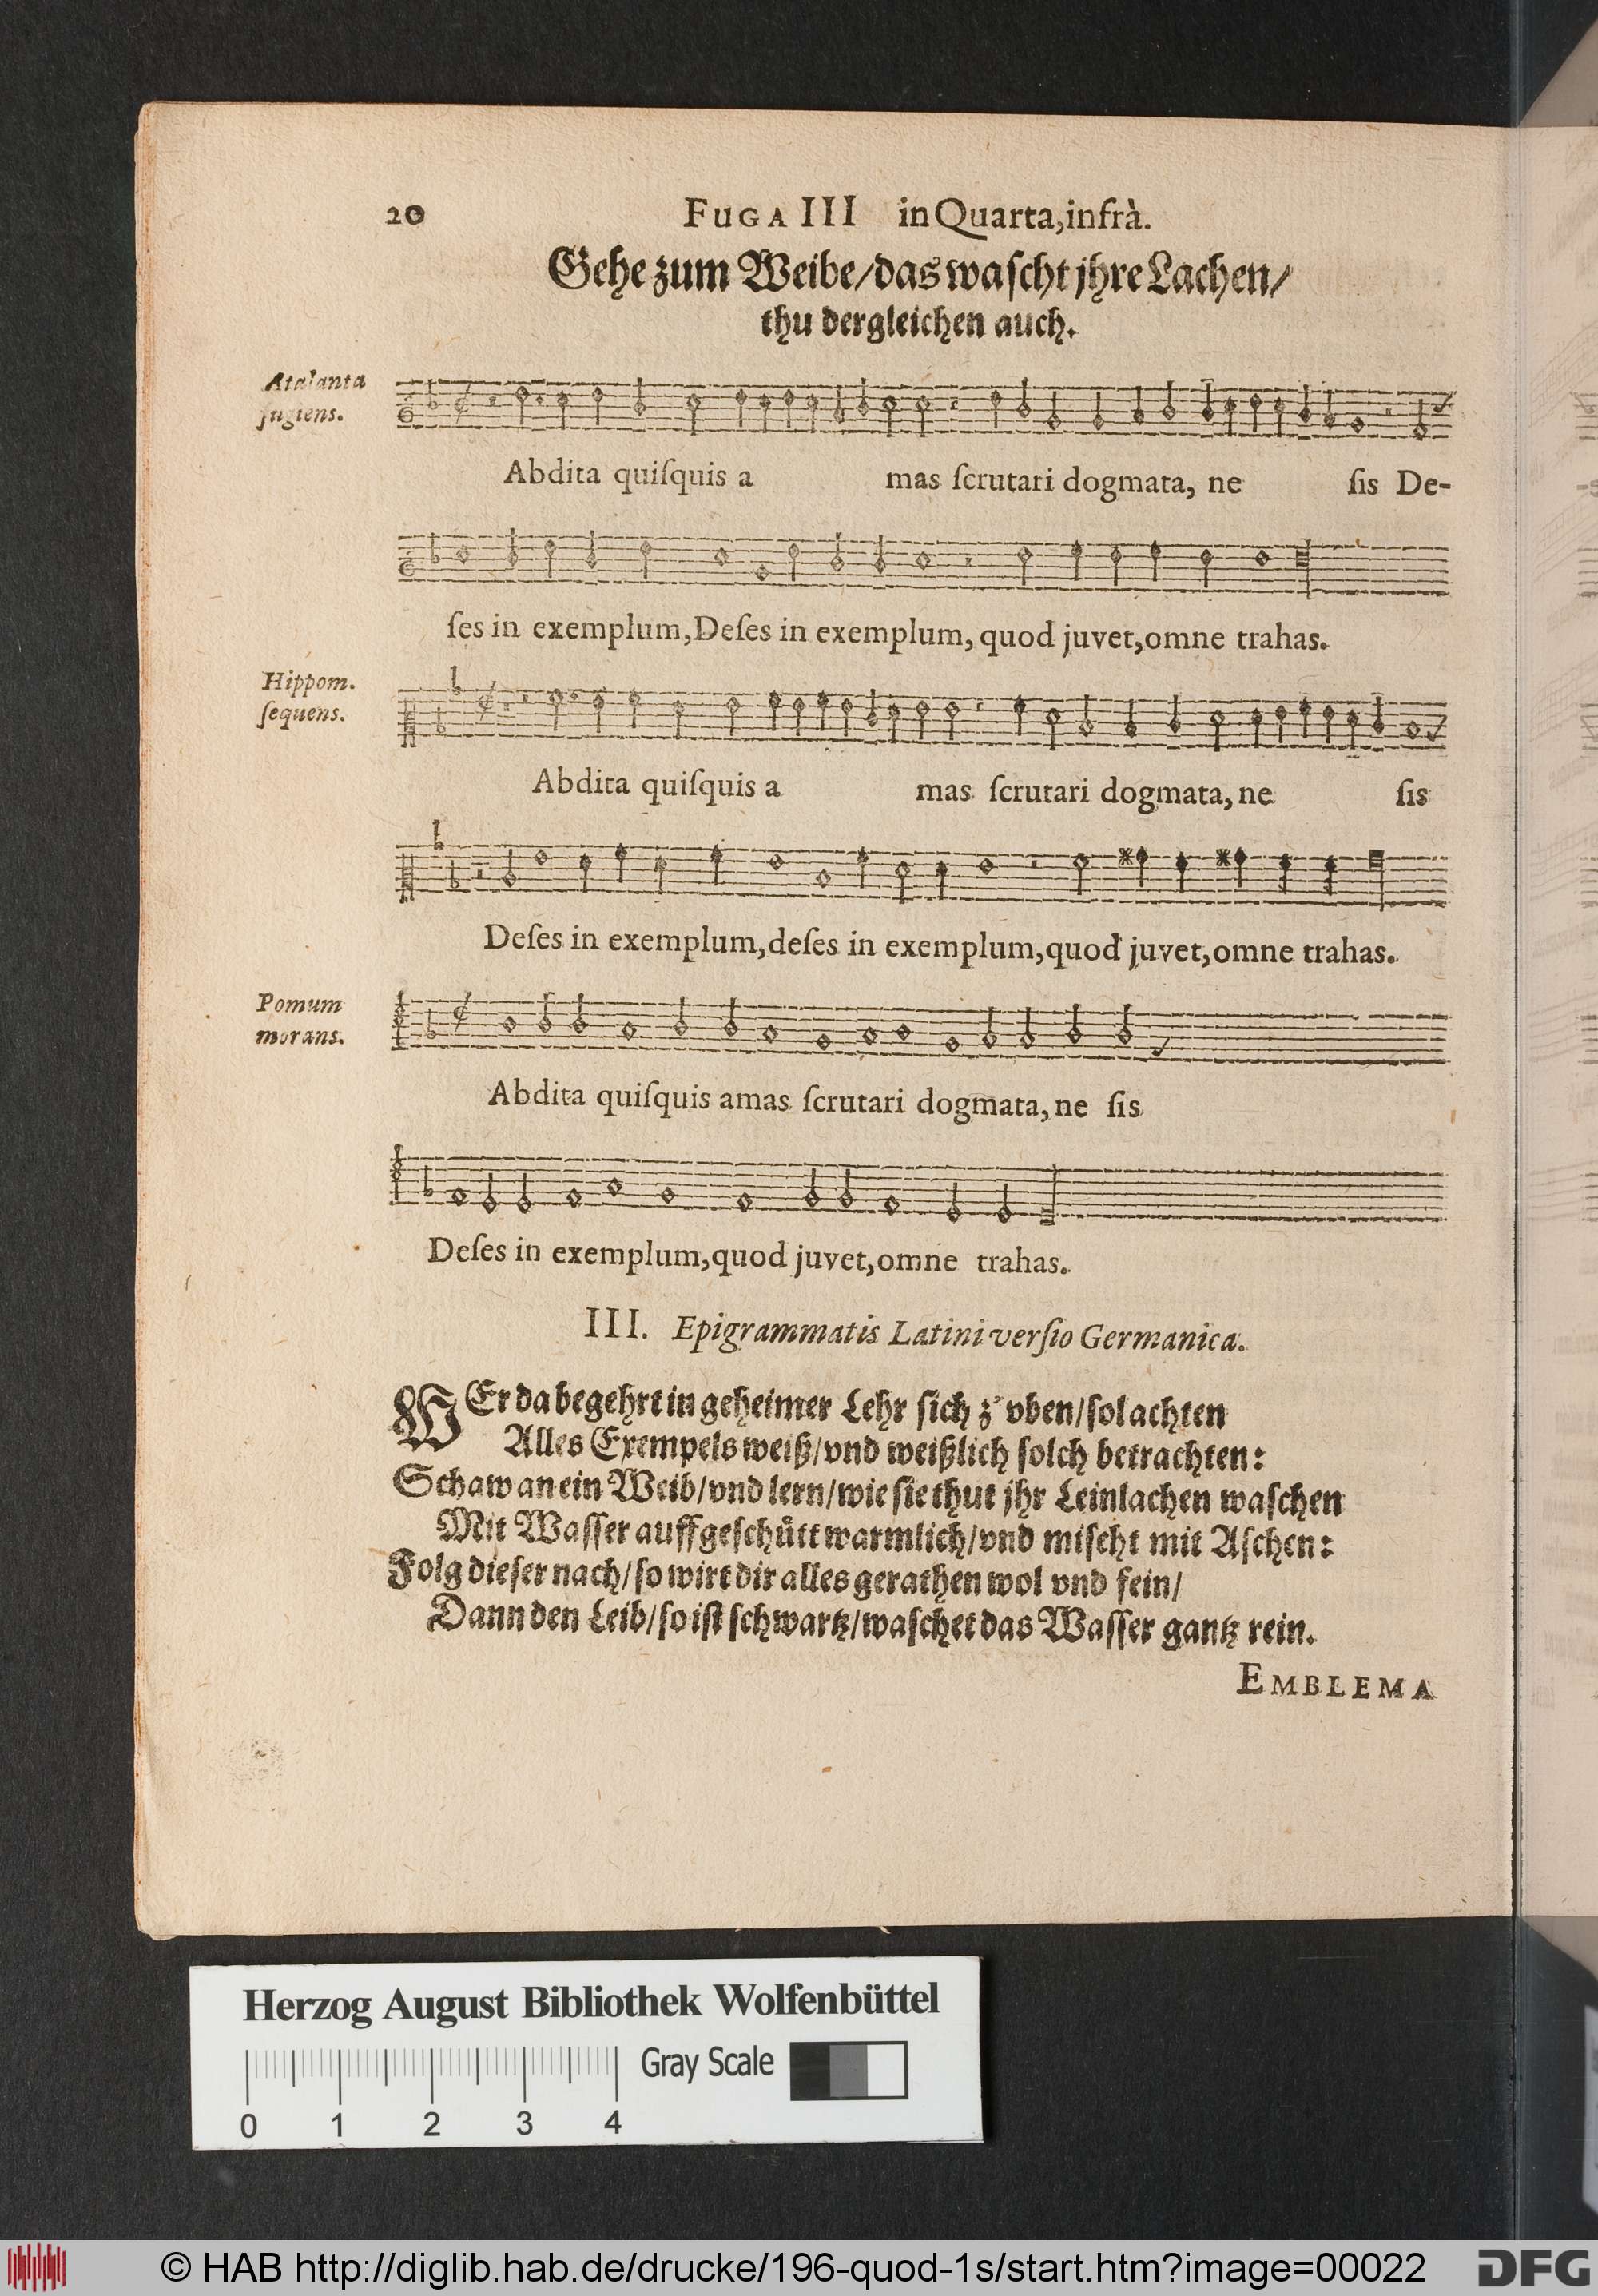 20 FUGA III in Quarta, infrà.
Gehe zum Weibe/das waſcht jhre Lachen/
thu dergleichen auch.
Atalanta
fugiens.
Abdita quiſquis a mas ſcrutari dogmata, ne ſis De-
ſes in exemplum, Deſes in exemplum, quod juvet, omne trahas.
Hippom.
ſequens.
Abdita quiſquis a mas ſcrutari dogmata, ne ſis
Deſes in exemplum, deſes in exemplum, quod juvet, omne trahas.
Pomum
morans.
Abdita quiſquis amas ſcrutari dogmata, ne ſis
Deſes in exemplum, quod juvet, omne trahas.
III. Epigrammatis Latini verſio Germanica.
WEr da begehrt in geheimer Lehr ſich zͦ vben/ſol achten
Alles Exempels weiß/vnd weißlich ſolch betrachten:
Schaw an ein Weib/vnd lern/wie ſie thut jhr Leinlachen waſchen
Mit Waſſer auffgeſchuͤtt warmlich/vnd miſcht mit Aſchen:
Folg dieſer nach/ſo wirt dir alles gerathen wol vnd fein/
Dann den Leib/ſo iſt ſchwartz/waſchet das Waſſer gantz rein.
EMBLEMA
Herzog August Bibliothek Wolfenbüttel
Gray Scale
0 1 2 3 4
© HAB http://diglib.hab.de/drucke/196-quod-1s/start.htm?image=00022
DFG